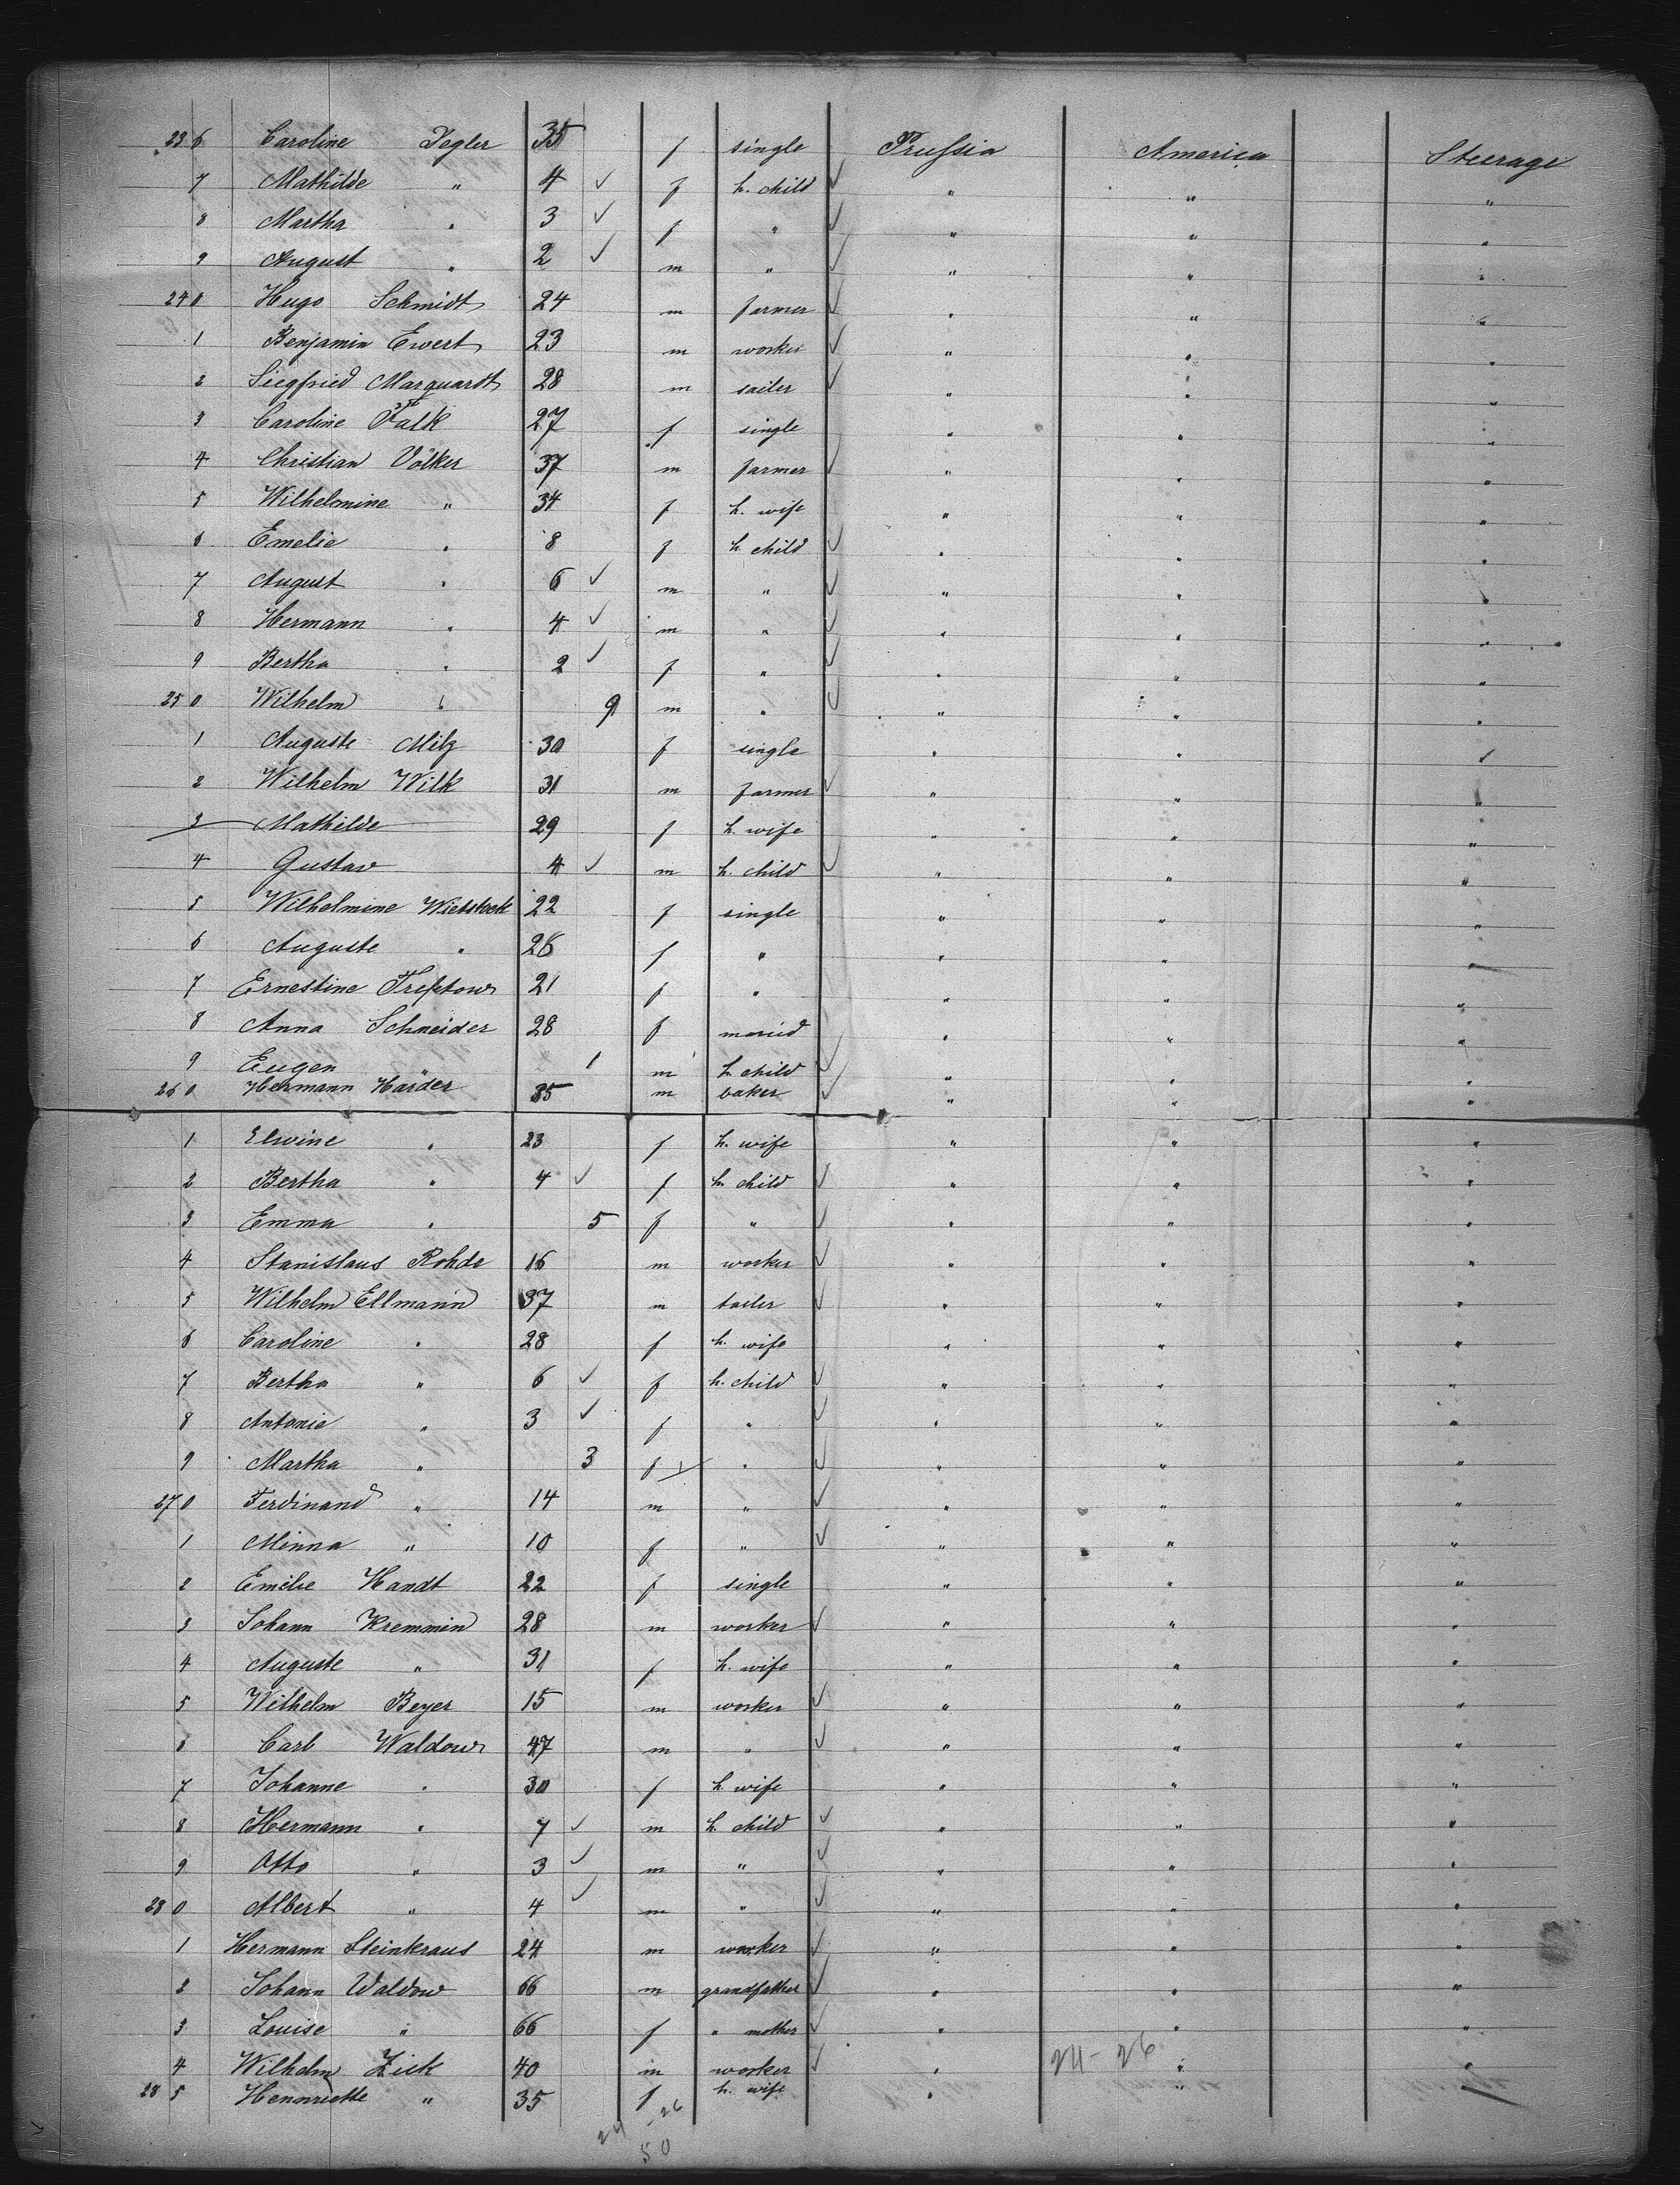 23 6 Caroline Tegler 35 f single Prussia America Steerage
7 Mathilde " 4 ✓ f h. child ✓ " " "
8 Martha " 3 ✓ f " ✓ " " "
9 August " 2 ✓ m " ✓ " " "
24 0 Hugo Schmidt 24 m farmer ✓ " " "
1 Benjamin Ewert 23 m worker ✓ " " "
2 Siegfried Marquardt 28 m sailer ✓ " " "
3 Caroline Falk 27 f single " " "
4 Christian Völker 37 m farmer ✓ " " "
5 Wilhelmine " 34 f h. wife " " "
6 Emelie " 8 f h. child ✓ " " "
7 August " 6 ✓ m " ✓ " " "
8 Hermann " 4 ✓ m " ✓ " " "
9 Bertha " 2 ✓ f " ✓ " " "
25 0 Wilhelm " 9 m " ✓ " " "
1 Auguste Milz 30 f single " " "
2 Wilhelm Wilk 31 m farmer ✓ " " "
3 Mathilde 29 f h. wife " " "
4 Gustav 4 ✓ m h. child ✓ " " "
5 Wilhelmine Wietstock 22 f single " " "
6 Auguste " 26 f " " " "
7 Ernestine Treptow 21 f " " " "
8 Anna Schneider 28 f maried " " "
9 Eugen " 1 m h. child ✓ " " "
26 0 Hermann Harder 35 m baker ✓ " " "
1 Elwine " 23 f h. wife " " "
2 Bertha " 4 ✓ f h. child ✓ " " "
3 Emma " 5 f " ✓ " " "
4 Stanislaus Rohde 16 m worker ✓ " " "
5 Wilhelm Ellmann 37 m tailer ✓ " " "
6 Caroline " 28 f h. wife " " "
7 Bertha " 6 ✓ f h. child ✓ " " "
8 Antonie " 3 ✓ f " ✓ " " "
9 Martha " 3 f " ✓ " " "
27 0 Ferdinand " 14 m " ✓ " " "
1 Minna " 10 f " ✓ " " "
2 Emilie Handt 22 f single " " "
3 Johann Kremmin 28 m worker ✓ " " "
4 Auguste " 31 f h. wife " " "
5 Wilhelm Beyer 15 m worker ✓ " " "
6 Carl Waldow 47 m " ✓ " " "
7 Johanne " 30 f h. wife " " "
8 Hermann " 7 ✓ m h. child ✓ " " "
9 Otto " 3 ✓ m " ✓ " " "
28 0 Albert " 4 ✓ m " ✓ " " "
1 Hermann Steinkraus 24 m worker ✓ " " "
2 Johann Waldow 66 m grandfather ✓ " " "
3 Louise " 66 f " mother ✓ " " "
4 Wilhelm Zick 40 m worker ✓ " " "
24 - 26
28 5 Hennriette " 35 f h. wife " "
24 - 26
50